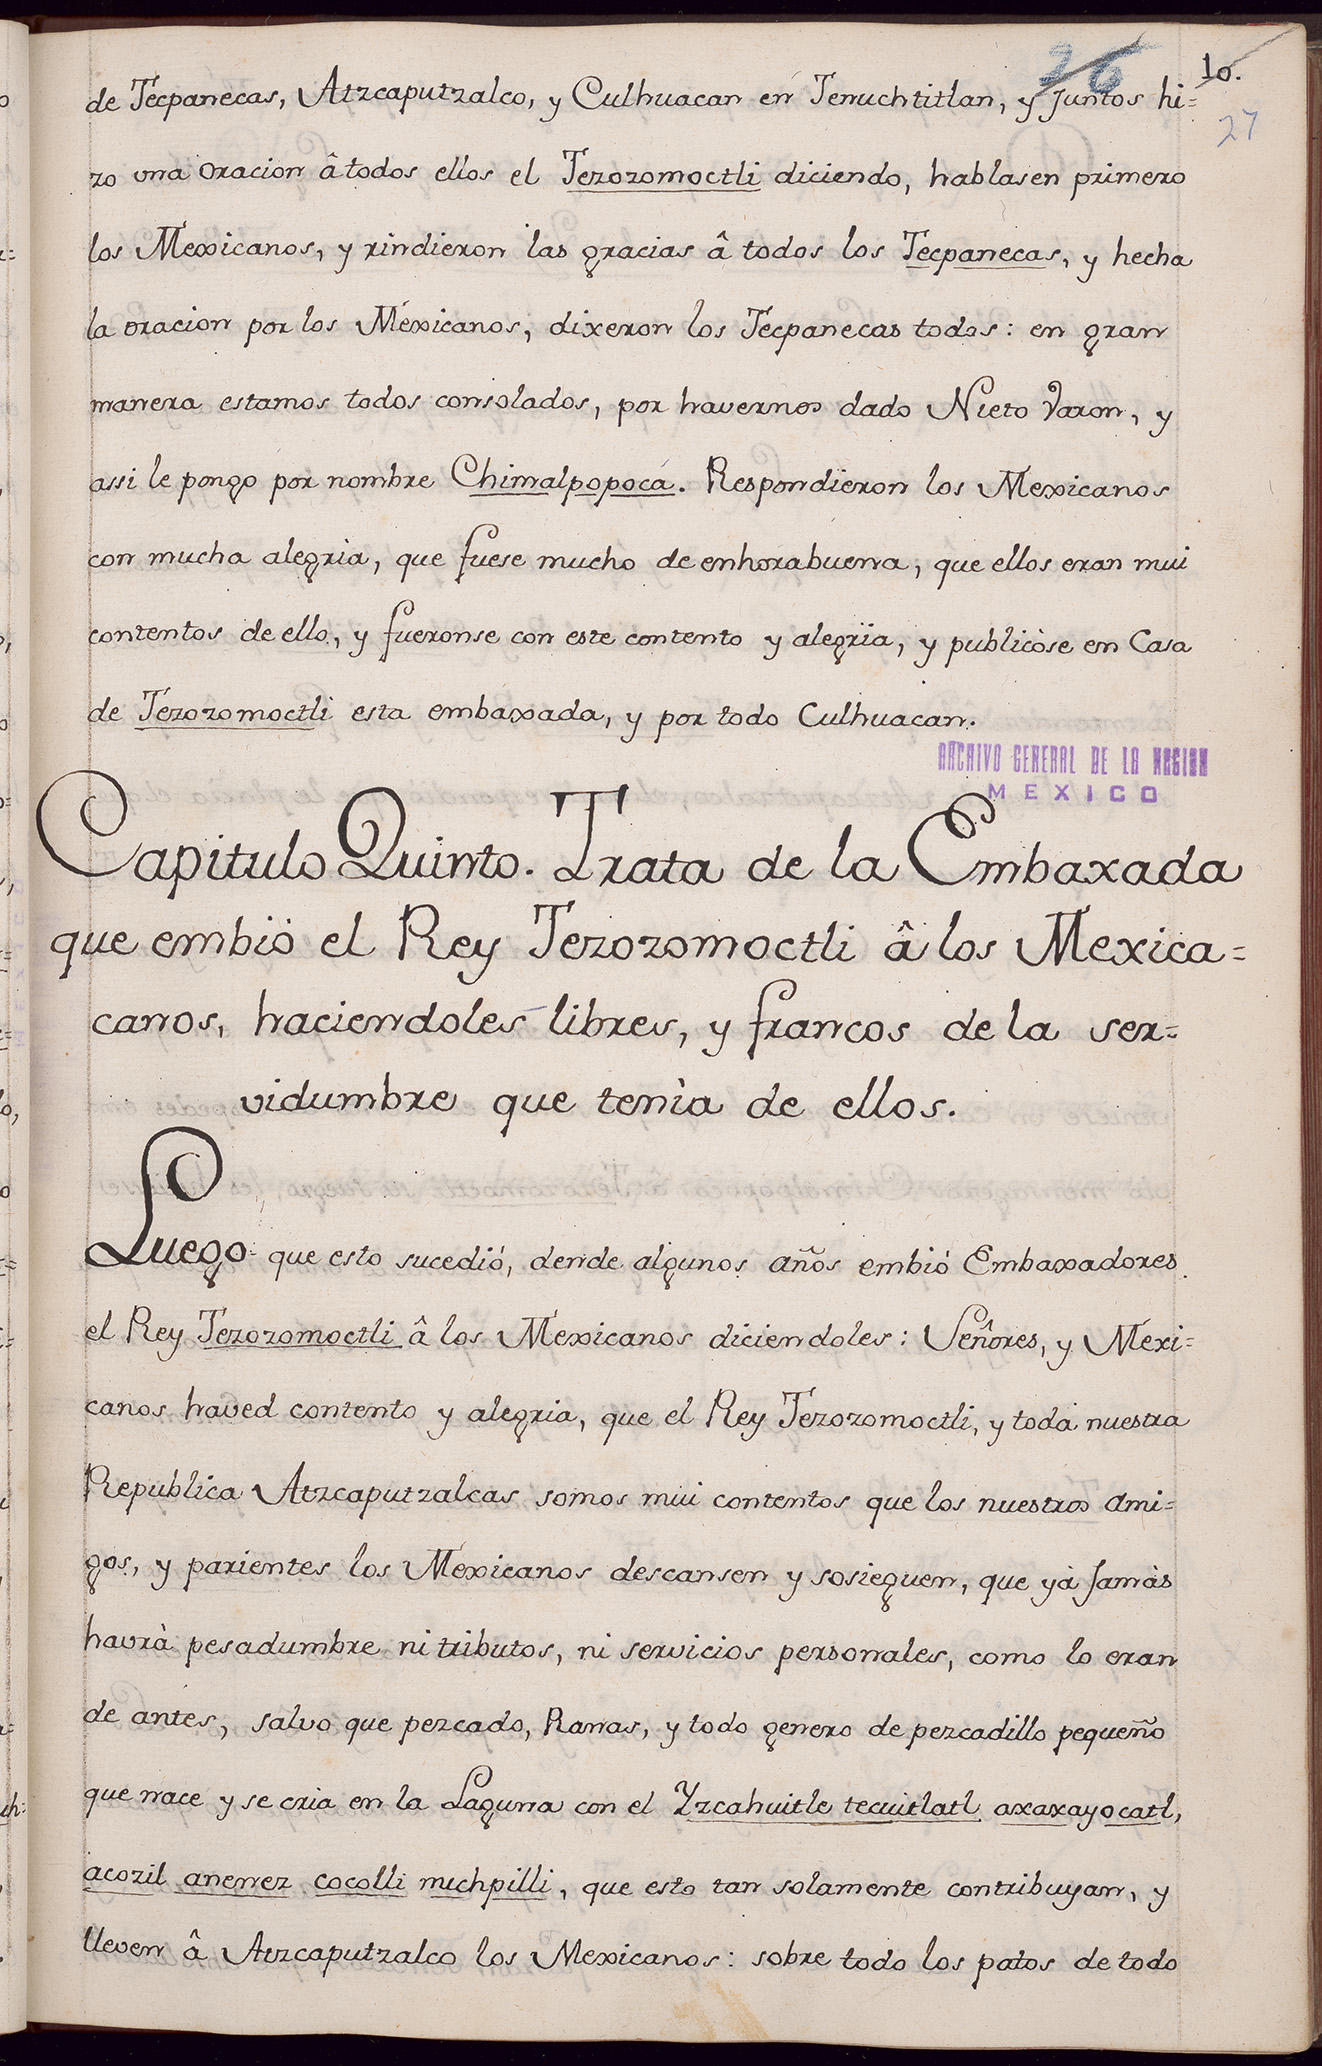 26
10.
27
de Tecpanecas, Atzcaputzalco, y Culhuacan en Tenuchtitlan, y juntos hi=
zo una oracion â todos ellos el Tezozomoctli diciendo, hablasen primero
los Mexicanos, y rindieron las gracias â todos los Tecpanecas, y hecha
la oracion por los Mexicanos, dixeron los Tecpanecas todos: en gran
manera estamos todos consolados, por havernos dado Nieto Varon, y
assi le pongo por nombre Chimalpopoca. Respondieron los Mexicanos
con mucha alegria, que fuese mucho de enhorabuena, que ellos eran mui
contentos de ello, y fueronse con este contento y alegria, y publicòse en Casa
de Tezozomoctli esta embaxada, y por todo Culhuacan.
ARCHIVO GENERAL DE LA NACION
MEXICO
Capitulo Quinto. Trata de la Embaxada
que embiò el Rey Tezozomoctli â los Mexica=
canos, haciendoles libres, y francos de la ser=
vidumbre que tenìa de ellos.
Luego que esto sucedió, dende algunos años embió Embaxadores
el Rey Tezozomoctli â los Mexicanos diciendoles: Señores, y Mexi=
canos haved contento y alegria, que el Rey Tezozomoctli, y toda nuestra
Republica Atzcaputzalcas somos mui contentos que los nuestros ami=
gos, y parientes los Mexicanos descansen y sosieguen, que yà jamàs
havrà pesadumbre ni tributos, ni servicios personales, como lo eran
de antes, salvo que pezcado, Ranas, y todo genero de pezcadillo pequeño
que nace y se cria en la Laguna con el Yzcahuitle tecuitlatl axaxayocatl,
acozil anenez cocolli michpilli, que esto tan solamente contribuyan, y
lleven â Atzcaputzalco los Mexicanos: sobre todo los patos de todo